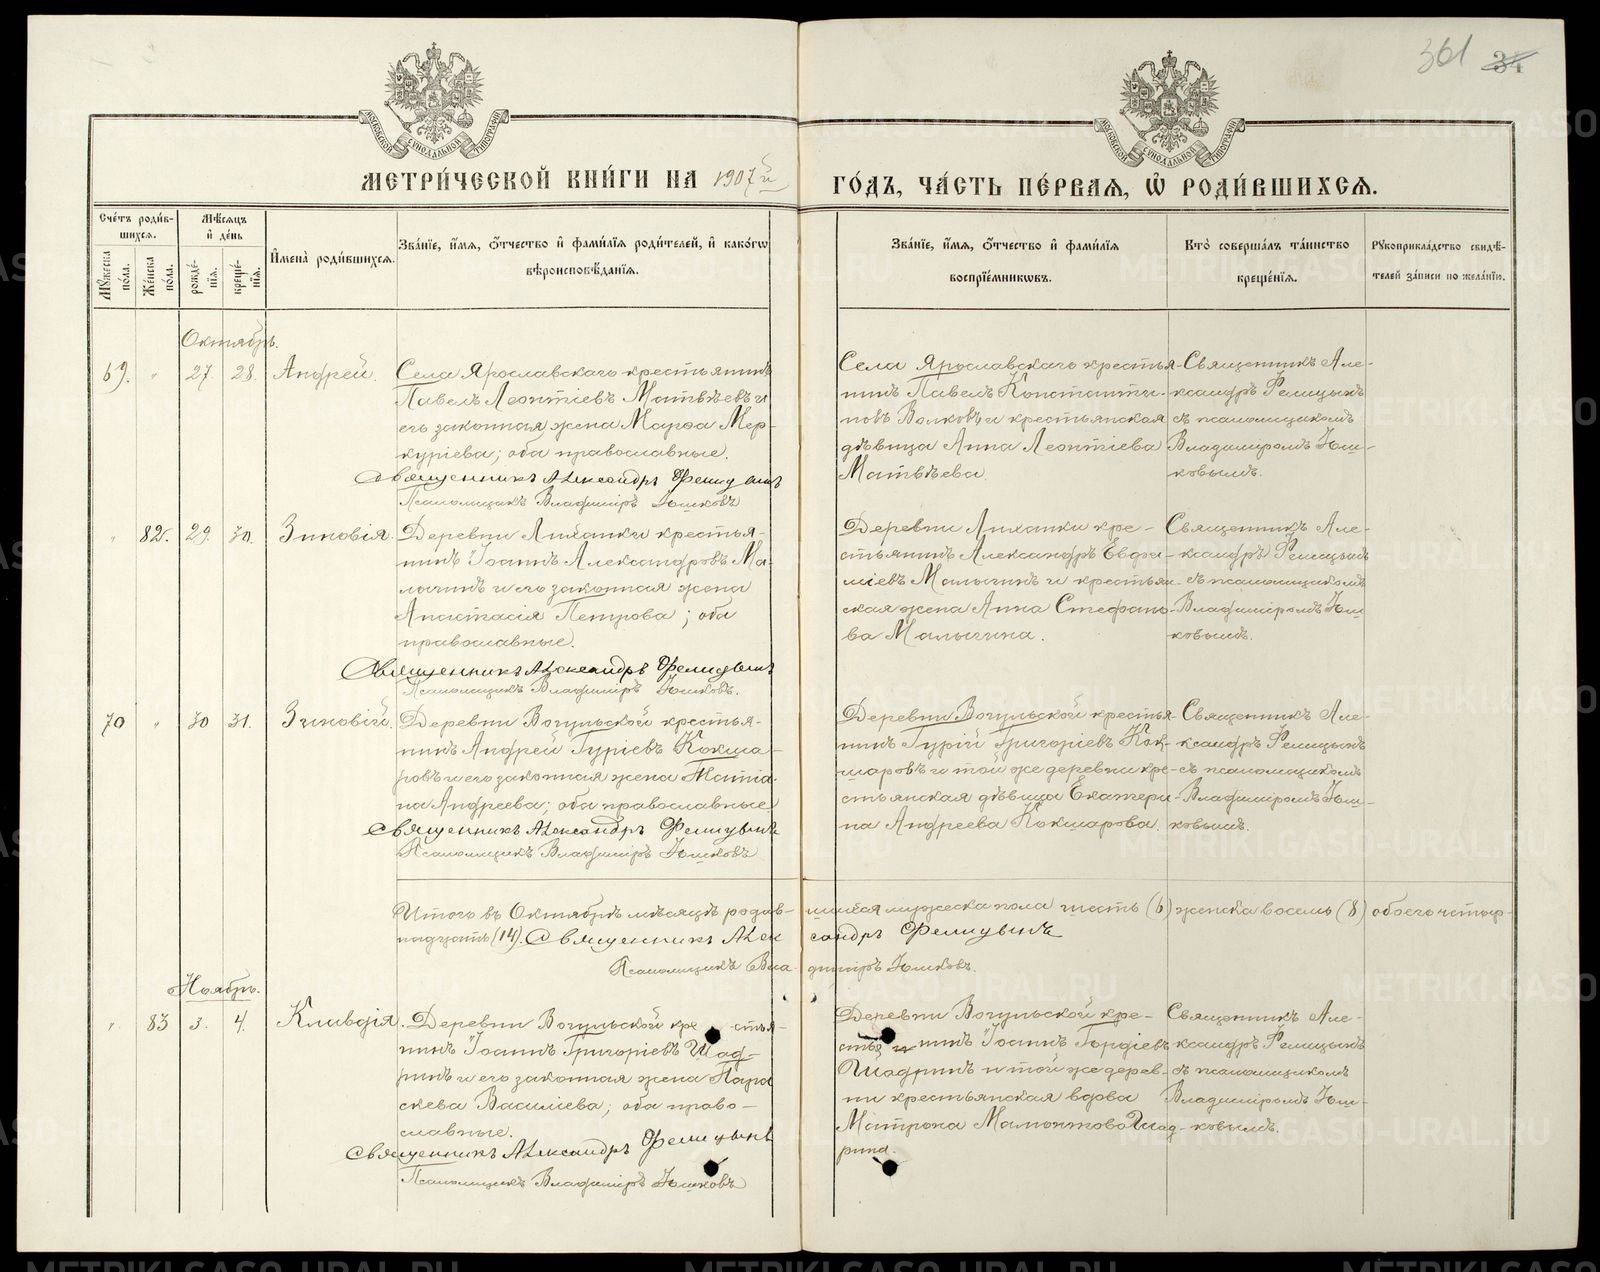 361 34
МЕТРИ́ЧЕСКОЙ КНИ́ГИ НА 1907й ГО́ДЪ, ЧА́СТЬ ПЕ́РВАЯ, Ѡ҆ РОДИ́ВШИХСЯ.
Сче́тъ роди́в-
шихся.
Мѣ́сяцъ
и҆ де́нь
Мꙋ́жеска по́ла.
Же́нска по́ла.
рожде́-
нїя.
креще́-
нїя.
И҆мена̀ роди́вшихся.
Зва́нїе, и҆́мя, ѻ҆́тчество и҆ фами́лїя роди́телей, и҆ како́гѡ
вѣроисповѣ́данїя.
Зва́нїе, и҆́мя, ѻ҆́тчество и҆ фами́лїя
воспрїе́мникѡвъ.
Кто̀ соверша́лъ та́инство
креще́нїя.
Рꙋкоприкла́дство свидѣ́-
телей за́писи по жела́нїю.
Октябрь.
69. " 27. 28. Андрей.
Села Ярославскаго крестьянинъ
Павелъ Леонтіевъ Матвѣевъ и
его законная жена Марѳа Мер-
куріева; оба православные.
Священникъ Александръ Фелицынъ
Псаломщикъ Владиміръ Юшковъ
Села Ярославскаго крестья-
нинъ Павелъ Константи-
новъ Волковъ и крестьянская
дѣвица Анна Леонтіева
Матвѣева.
Священникъ Але-
ксандръ Фелицынъ
съ псаломщикомъ
Владиміромъ Юш-
ковымъ.
" 82. 29. 30. Зиновія.
Деревни Лиханки крестья-
нинъ Іоаннъ Александровъ Ма-
лыгинъ и его законная жена
Анастасія Петрова; оба
православные.
Священникъ Александръ Фелицынъ
Псаломщикъ Владиміръ Юшковъ.
Деревни Лиханки кре-
стьянинъ Александръ Евфи-
міевъ Малыгинъ и крестьян-
ская жена Анна Стефано-
ва Малыгина.
Священникъ Але-
ксандръ Фелицынъ
съ псаломщикомъ
Владиміромъ Юш-
ковымъ.
70 " 30 31. Зиновій.
Деревни Вогульской крестья-
нинъ Андрей Гуріевъ Кокша-
ровъ и его законная жена Татіа-
на Андреева; оба православные
Священникъ Александръ Фелицынъ
Псаломщикъ Владиміръ Юшковъ
Деревни Вогульской крестья-
нинъ Гурій Григоріевъ Кок-
шаровъ и той же деревни кре-
стьянская дѣвица Екатери-
на Андреева Кокшарова.
Священникъ Але-
ксандръ Фелицынъ
съ псаломщикомъ
Владиміромъ Юш-
ковымъ.
Итого въ Октябрѣ мѣсяцѣ родив-шихся мужеска пола шесть (6) женска восемь (8) обоего четыр-
надцать (14). Священникъ Александръ Фелицынъ
Псаломщикъ Владиміръ Юшковъ.
Ноябрь.
" 83 3. 4. Клавдія.
Деревни Вогульской кре стья-
нинъ Іоаннъ Григоріевъ Шад-
ринъ и его законная жена Пара
скева Василіева; оба право-
славные.
Священникъ Александръ Фелицынъ
Псаломщикъ Владиміръ Юшковъ
Деревни Вогульской кре-
стья нинъ Іоаннъ Гордіевъ
Шадринъ и той же дерев-
ни крестьянская вдова
Матрона Мамонтова Шад-
рина.
Священникъ Але-
ксандръ Фелицынъ
съ псаломщикомъ
Владиміромъ Юш-
ковымъ.
METRIKI.GASO-URAL.RU